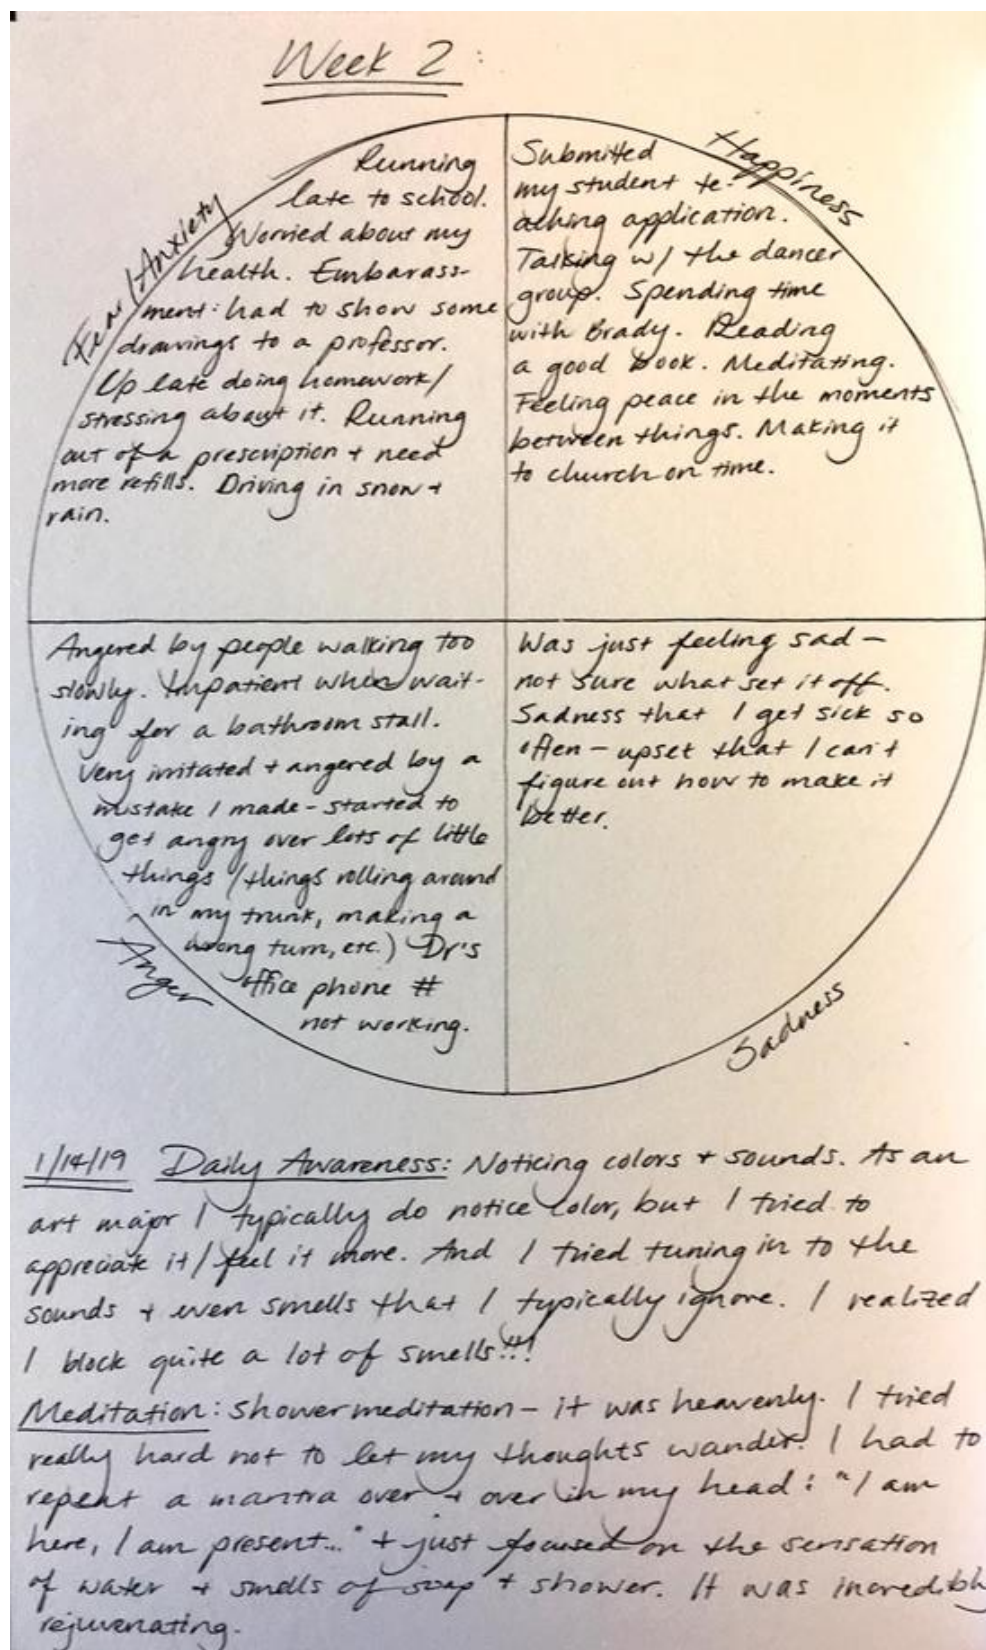 Week 2:
Fear/Anxiety
Running
late to school.
Worried about my
health. Embarass-
ment: had to show some
drawings to a professor.
Up late doing homework/
stressing about it. Running
out of a prescription + need
more refills. Driving in snow +
rain.
Happiness
Submitted
my student te-
aching application.
Talking w/ the dancer
group. Spending time
with Brady. Reading
a good book. Meditating.
Feeling peace in the moments
between things. Making it
to church on time.
Angered by people walking too
slowly. Impatient when wait-
ing for a bathroom stall.
Very irritated + angered by a
mistake I made - started to
get angry over lots of little
things (things rolling around
in my trunk, making a
wrong turn, etc.) Dr's
office phone #
not working.
Anger
Was just feeling sad -
not sure what set it off.
Sadness that I get sick so
often - upset that I can't
figure out how to make it
better.
Sadness
1/14/19 Daily Awareness: Noticing colors + sounds. As an
art major I typically do notice color, but I tried to
appreciate it/feel it more. And I tried tuning in to the
sounds + even smells that I typically ignore. I realized
I block quite a lot of smells!!!
Meditation: Shower meditation - it was heavenly. I tried
really hard not to let my thoughts wander. I had to
repeat a mantra over + over in my head: "I am
here, I am present..." + just focused on the sensation
of water + smells of soap + shower. It was incredibly
rejuvenating.